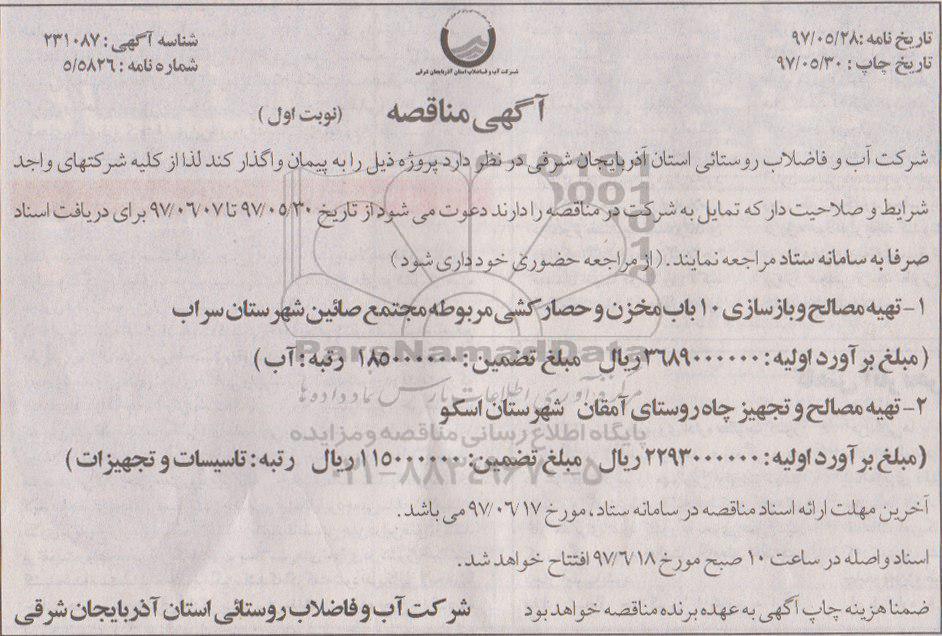 تاریخ نامه: ۹۷/۰۵/۲۸
تاریخ چاپ: ۹۷/۰۵/۳۰
شرکت آب و فاضلاب استان آذربایجان شرقی
شناسه آگهی: ۲۳۱۰۸۷
شماره نامه: ۵/۵۸۲۶
آگهی مناقصه (نوبت اول)
شرکت آب و فاضلاب روستائی استان آذربایجان شرقی در نظر دارد پروژه ذیل را به پیمان واگذار کند لذا از کلیه شرکتهای واجد
شرایط و صلاحیت دار که تمایل به شرکت در مناقصه را دارند دعوت می شود از تاریخ ۹۷/۰۵/۳۰ تا ۹۷/۰۶/۰۷ برای دریافت اسناد
صرفا به سامانه ستاد مراجعه نمایند. (از مراجعه حضوری خودداری شود)
۱- تهیه مصالح و بازسازی ۱۰ باب مخزن و حصارکشی مربوطه مجتمع صائین شهرستان سراب
(مبلغ برآورد اولیه: ۳۶۸۹۰۰۰۰۰۰ ریال مبلغ تضمین: ۱۸۵۰۰۰۰۰۰ رتبه: آب)
ParsNamadData
مرکز فرآوری اطلاعات پارس نماد داده ها
۲- تهیه مصالح و تجهیز چاه روستای آمقان شهرستان اسکو
پایگاه اطلاع رسانی مناقصه و مزایده
(مبلغ برآورد اولیه: ۲۲۹۳۰۰۰۰۰۰ ریال مبلغ تضمین: ۱۱۵۰۰۰۰۰۰ ریال رتبه: تاسیسات و تجهیزات)
آخرین مهلت ارائه اسناد مناقصه در سامانه ستاد، مورخ ۹۷/۰۶/۱۷ می باشد.
اسناد واصله در ساعت ۱۰ صبح مورخ ۹۷/۶/۱۸ افتتاح خواهد شد.
ضمنا هزینه چاپ آگهی به عهده برنده مناقصه خواهد بود
شرکت آب و فاضلاب روستائی استان آذربایجان شرقی